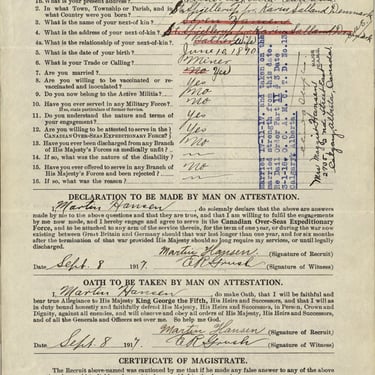 1a. What is your present address?
2. In what Town, Township or Parish, and in
what Country were you born?
3. What is the name of your next-of-kin?
4. What is the address of your next-of-kin?
4a. What is the relationship of your next-of-kin? Wife
5. What is the date of your birth? June 10, 1890
6. What is your Trade or Calling? Miner
7. Are you married? No Yes
8. Are you willing to be vaccinated or re-
vaccinated and inoculated? Yes
9. Do you now belong to the Active Militia? No
10. Have you ever served in any Military Force? No
If so, state particulars of former Service.
11. Do you understand the nature and terms of
your engagement? Yes
12. Are you willing to be attested to serve in the
CANADIAN OVER-SEAS EXPEDITIONARY FORCE? Yes
13. Have you ever been discharged from any Branch
of His Majesty's Forces as medically unfit? No
14. If so, what was the nature of the disability?
15. Have you ever offered to serve in any Branch
of His Majesty's Forces and been rejected? No
16. If so, what was the reason?
DECLARATION TO BE MADE BY MAN ON ATTESTATION.
I, Martin Hansen, do solemnly declare that the above are answers
made by me to the above questions and that they are true, and that I am willing to fulfil the engagements
by me now made, and I hereby engage and agree to serve in the Canadian Over-Seas Expeditionary
Force, and to be attached to any arm of the service therein, for the term of one year, or during the war now
existing between Great Britain and Germany should that war last longer than one year, and for six months
after the termination of that war provided His Majesty should so long require my services, or until legally
discharged.
Martin Hansen (Signature of Recruit)
Date Sept. 8 1917 (Signature of Witness)
OATH TO BE TAKEN BY MAN ON ATTESTATION.
I, Martin Hansen, do make Oath, that I will be faithful and
bear true Allegiance to His Majesty King George the Fifth, His Heirs and Successors, and that I will as
in duty bound honestly and faithfully defend His Majesty, His Heirs and Successors, in Person, Crown and
Dignity, against all enemies, and will observe and obey all orders of His Majesty, His Heirs and Successors,
and of all the Generals and Officers set over me. So help me God.
Martin Hansen (Signature of Recruit)
Date Sept. 8 1917 (Signature of Witness)
CERTIFICATE OF MAGISTRATE.
The Recruit above-named was cautioned by me that if he made any false answer to any of the above